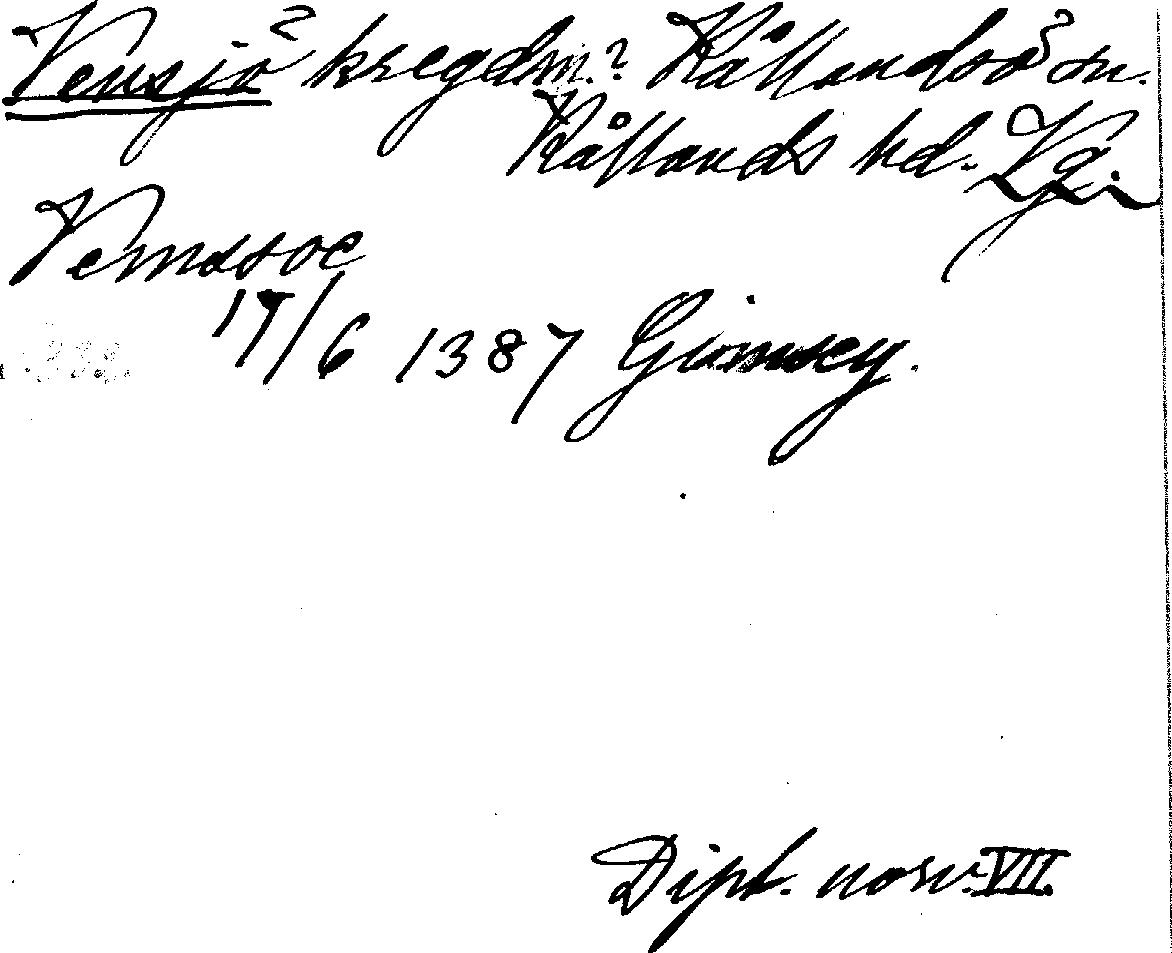 Vensjö kregdm.? Kållandsö sn.
Kållands hd. Vg.
Vemdsoe
17/6 1387 Gimsey.
Dipl. norv. VII.